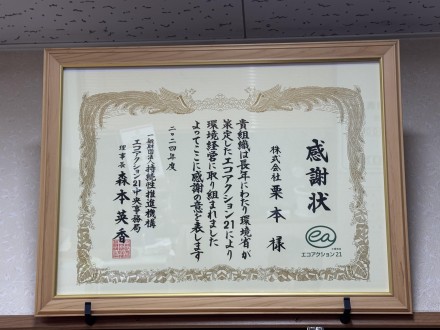 感謝状
ea
エコアクション21
株式会社 栗本 様
貴組織は長年にわたり環境省が
策定したエコアクション21により
環境経営に取り組まれました
よってここに感謝の意を表します
二〇二四年度
一般財団法人 持続性推進機構
エコアクション21中央事務局
理事長 森本英香